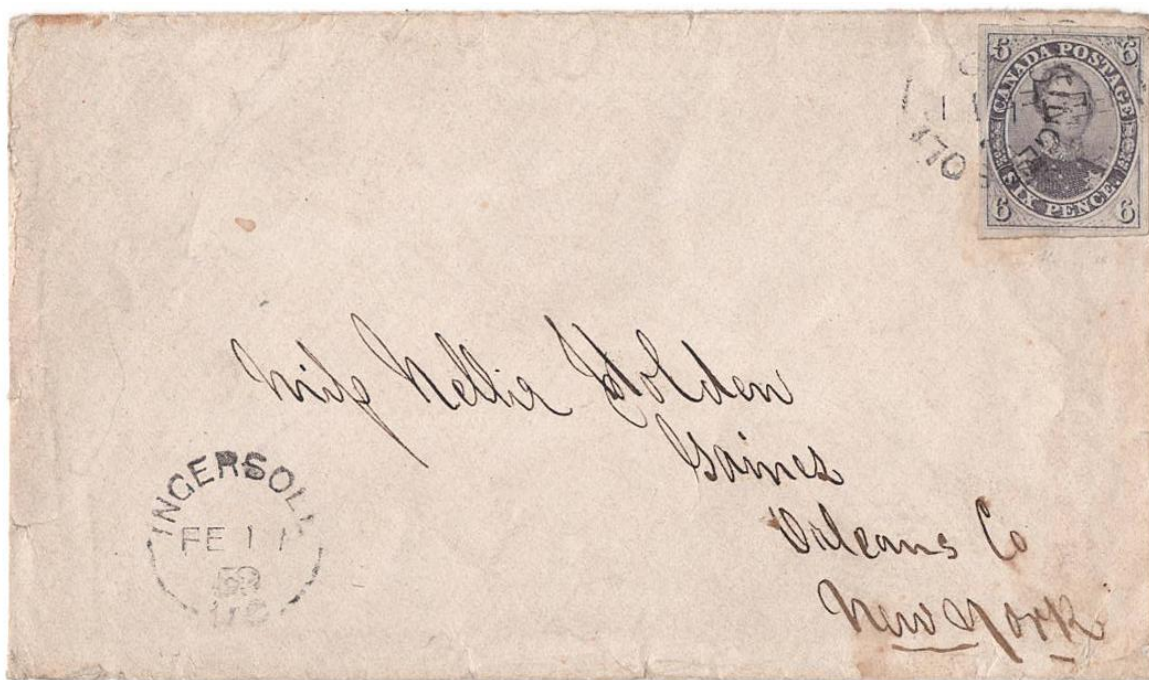 6 6
CANADA POSTAGE
SIX PENCE.
6 6
Miss Nellie Holden
Gaines
Orleans Co
New York
INGERSOLL
FE 11
59
U.C